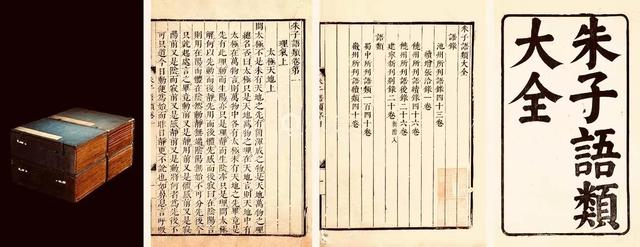 朱子語類
大全
朱子語類大全
語錄
池州所刋語錄四十三卷
續增張洽錄一卷
饒州所刋語續錄四十六卷
饒州所刋語後錄二十六卷
建寧新刋別錄二十卷
語類
蜀中所刋語類一百四十卷
徽州所刋語續類四十卷
朱子語類卷第一
理氣上
太極天地上
問太極不是未有天地之先有箇渾成之物是天地萬物之理
總名否曰太極只是天地萬物之理在天地言則天地中有
太極在萬物言則萬物中各有太極未有天地之先畢竟是
先有此理動而生陽亦只是理靜而生陰亦只是理問太極
解何以先動而後靜先用而後體先感而後寂曰在陰陽言
則用在陽而體在陰然動靜無端陰陽無始不可分先後今
只就起處言之畢竟動前又是靜用前又是體感前又是寂
陽前又是陰而寂前又是感靜前又是動將何者為先後不
可只道今日動便為始而昨日靜更不說也如鼻息言呼吸